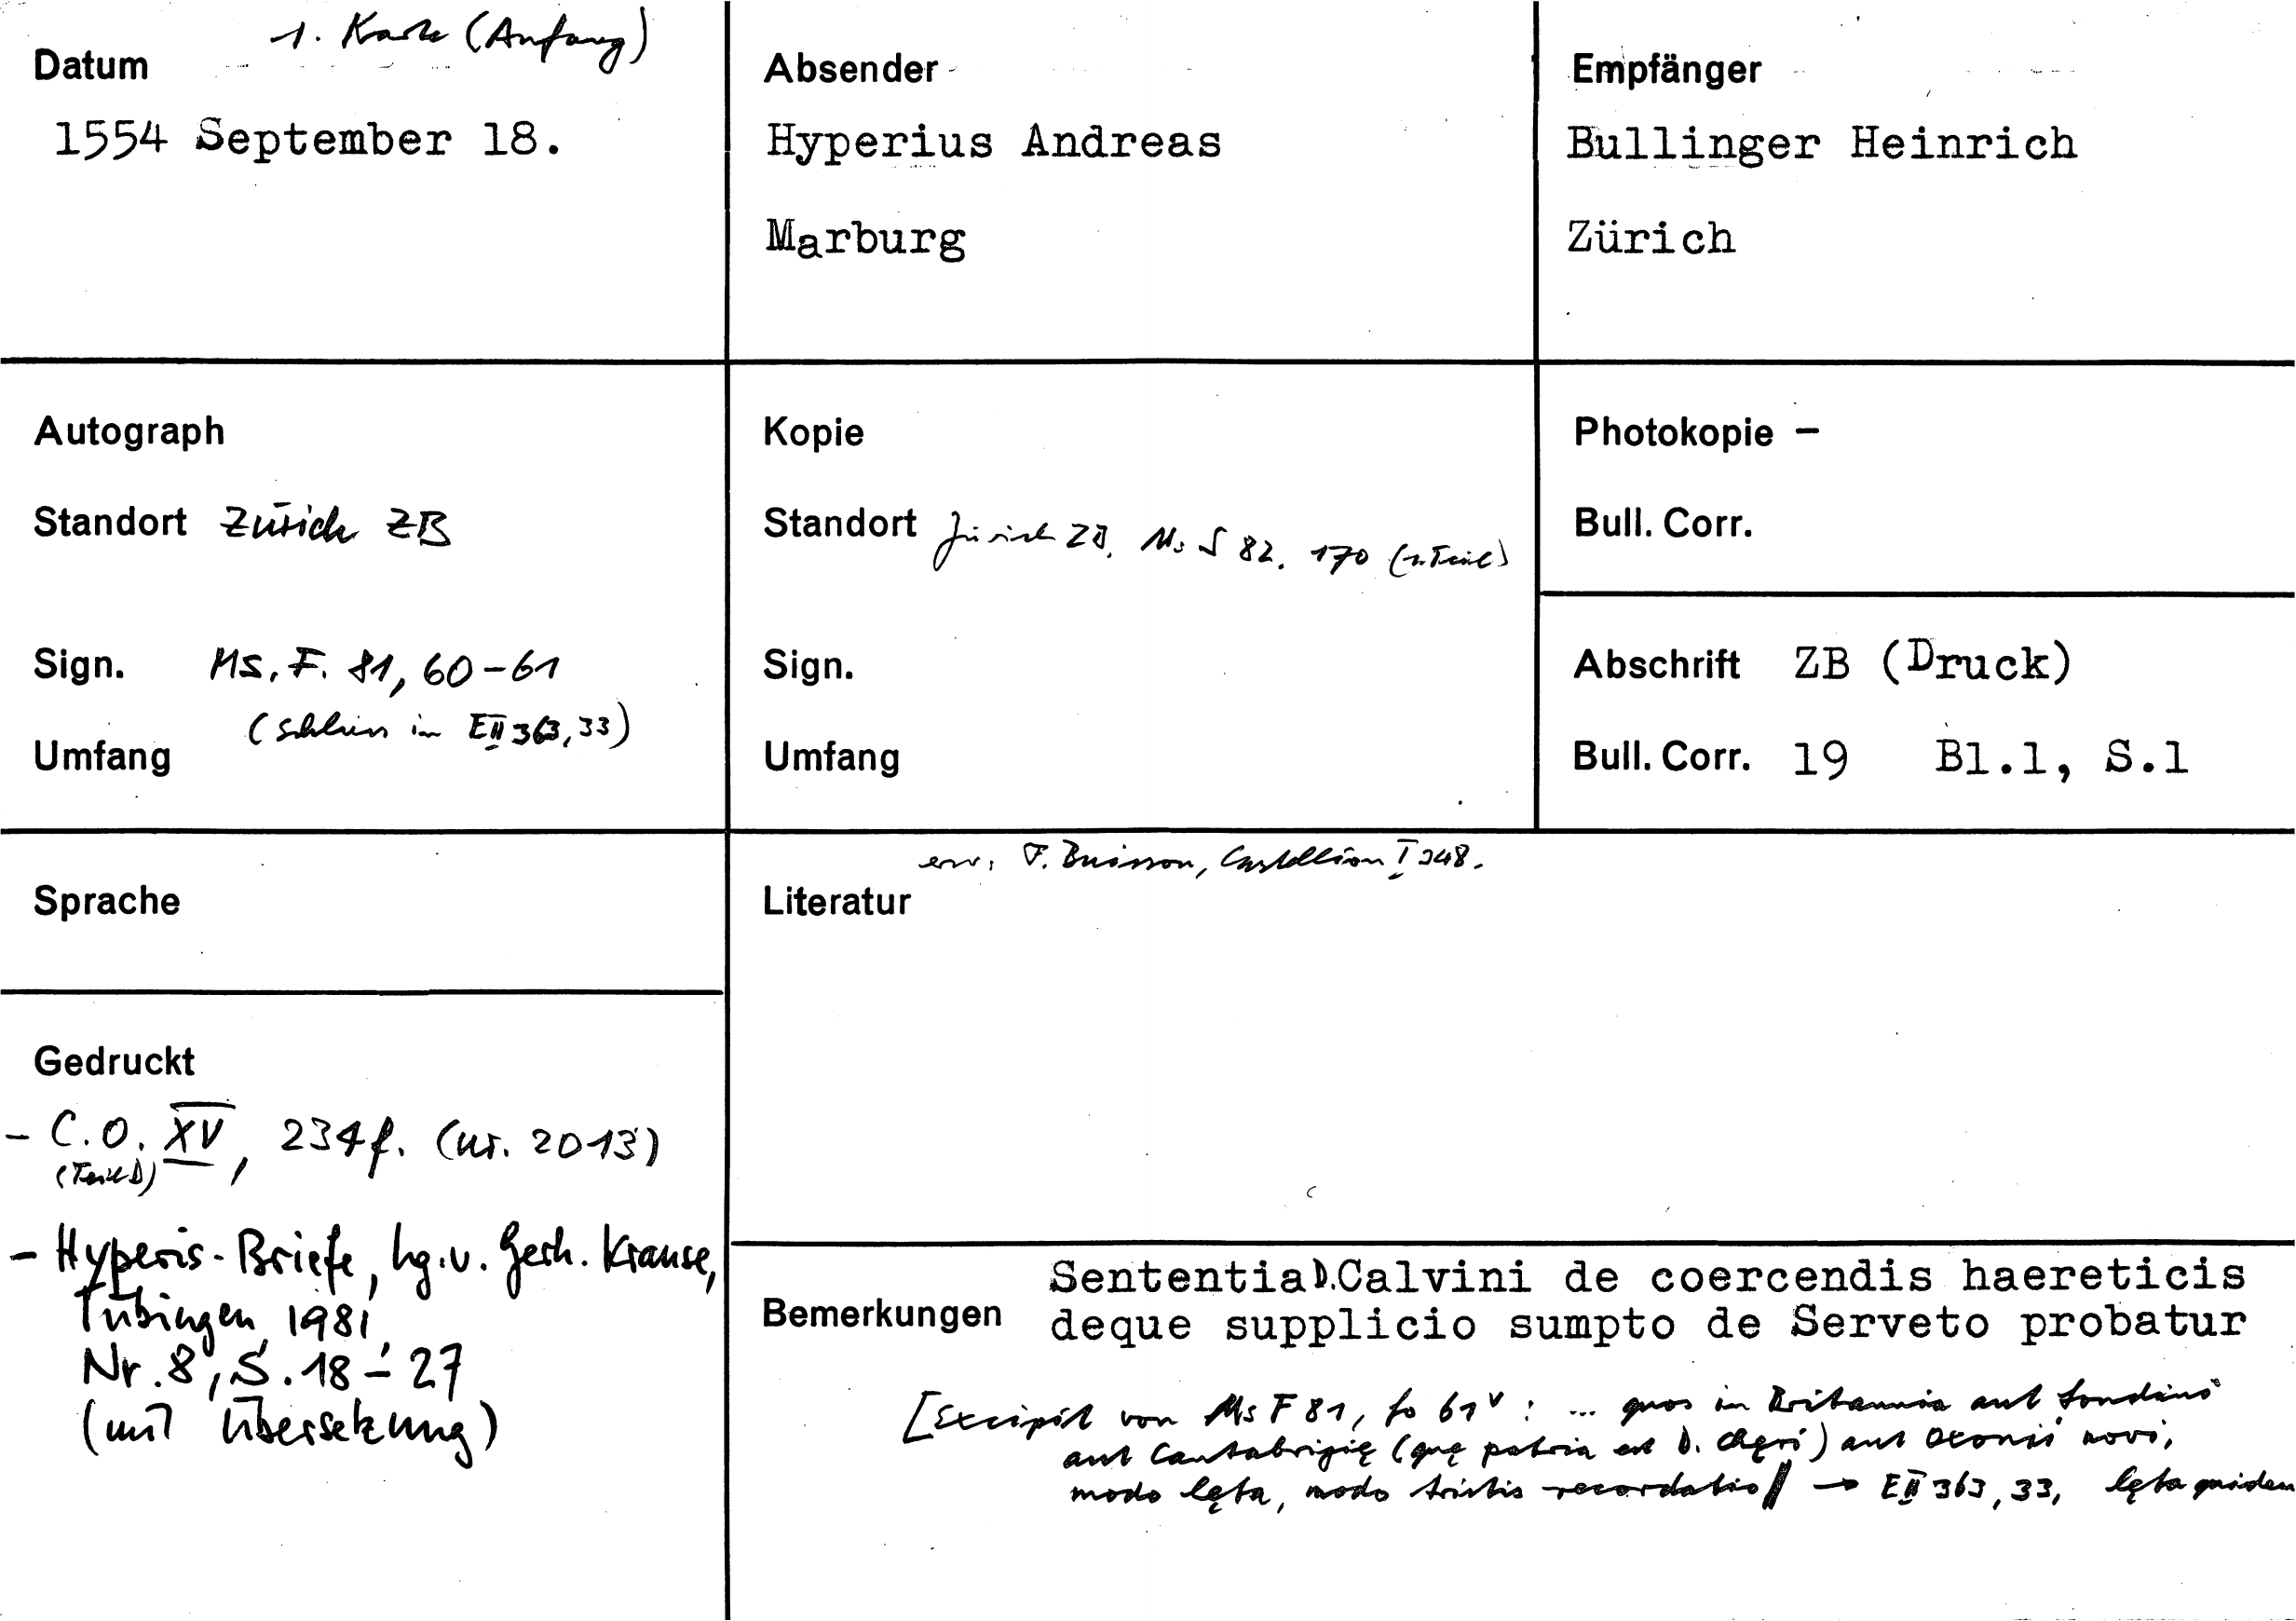 1. Karte (Anfang)
Datum
1554 September 18.
Absender
Hyperius Andreas
Marburg
Empfänger
Bullinger Heinrich
Zürich
Autograph
Standort Zürich ZB
Sign. Ms. F. 81, 60-61
(Schluss in E II 363, 33)
Umfang
Kopie
Standort Zürich ZB, Ms S 82, 170 (1. Teil)
Sign.
Umfang
Photokopie -
Bull. Corr.
Abschrift ZB (Druck)
Bull. Corr. 19 Bl.1, S.1
Sprache
Gedruckt
- C.O. XV, 234f. (nr. 2013)
- Hyperis-Briefe, hg. v. Gerh. Krause,
Tübingen 1981,
Nr. 8, S. 18-27
(mit Übersetzung)
erw. F. Buisson, Castellion I 348.
Literatur
Bemerkungen
Sententia D. Calvini de coercendis haereticis
deque supplicio sumpto de Serveto probatur
[Excipit von Ms F 81, fo 61v: ... quos in Britannia aut Londini
aut Cantabrigię (quę patria est D. ) aut Oxonii novi,
modo lęta, modo tristis recordatio // → E II 363, 33, lęta quidem